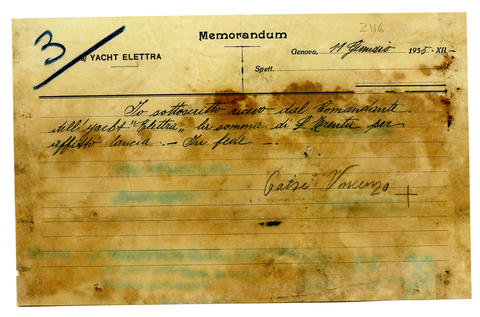 2116
Memorandum
3
YACHT ELETTRA
Genova, 11 Gennaio 1935-XII-
Spett.
Io sottoscritto ricevo dal Comandante
dell'yacht "Elettra" la somma di L. Trenta per
affitto lancia. - In fede -.
Vincenzo